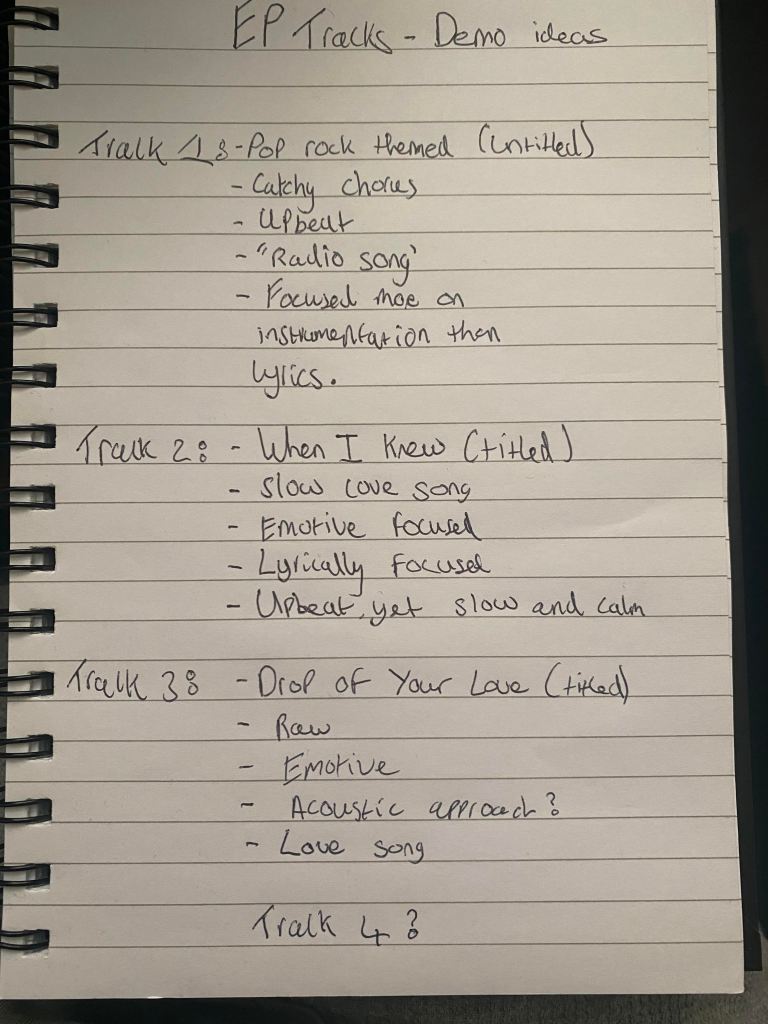 EP Tracks - Demo ideas
Track 1: - Pop rock themed (untitled)
- Catchy chorus
- Upbeat
- "Radio song"
- Focused moe on
instrumentation then
lyrics.
Track 2: - When I Knew (titled)
- Slow love song
- Emotive focused
- Lyrically focused
- Upbeat, yet slow and calm
Track 3: - Drop of Your Love (titled)
- Raw
- Emotive
- Acoustic approach?
- Love song
Track 4?